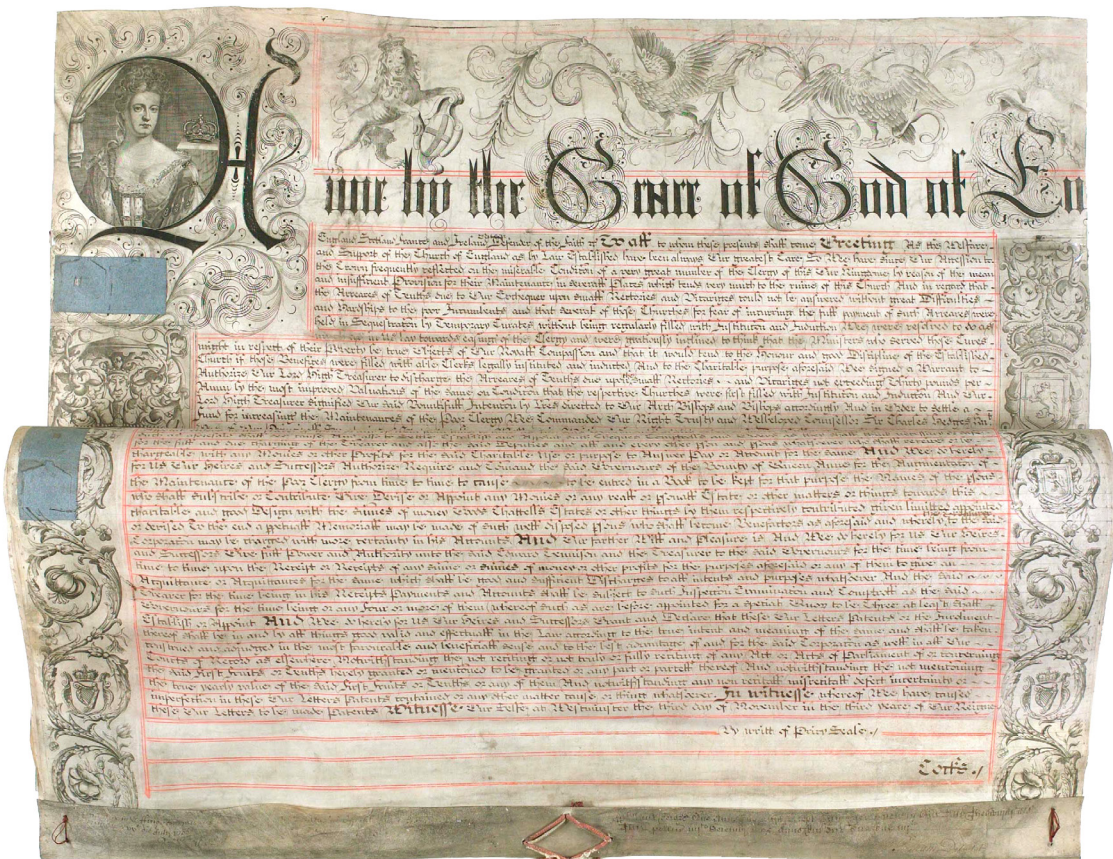 Anne by the Grace of God of En
England Scotland France and Ireland Defender of the Faith &c To all to whom these presents shall come Greeting As the Welfare
and Support of the Church of England as by Law Established have been always Our greatest Care So We have since Our Accession to
the Crown frequently reflected on the miserable Condition of a very great number of the Clergy of this Our Kingdome by reason of the mean
and insufficient Provision for their Maintenance in severall Places which tends very much to the ruine of this Church And in regard that
the Arreares of Tenths due to Our Exchequer upon small Rectories and Vicariges could not be answered without great Difficulties
and Hardships to the poor Incumbents and that severall of those Churches for fear of incurring the full payment of such Arreares were
held by Sequestration by Temporary Curates without being regularly filled with Institution and Induction We were resolved to do as
by Law towards easing of the Clergy and were graciously inclined to think that the Ministers who served those Cures
might in respect of their Poverty be true Objects of Our Royall Compassion and that it would tend to the Honour and good Discipline of the Established
Church if those Benefices were filled with able Clerks legally instituted and inducted And to the Charitable purpose aforesaid Wee signed a Warrant to
Authorize Our Lord High Treasurer to discharge the Arreares of Tenths due upon small Rectories and Vicariges not exceeding Thirty pounds per
Annum by the most improved Valuations of the same on Condition that the respective Churches were first filled with Institution and Induction And Our
Lord High Treasurer signified Our said Bountifull Intention by Lres directed to Our Arch Bishops and Bishops accordingly And in Order to settle a
Fund for increasing the Maintenance of the Poor Clergy We Commanded Our Right Trusty and Welbeloved Counsellor Sir Charles Hedges
chargeable with any Monies or other Profits for the said Charitable Use or purpose to Answer Pay or Account for the same And Wee do hereby
for Us Our Heires and Successors Authorize Require and Comand the said Governours of the Bounty of Queen Anne for the Augmentation of
the Maintenance of the Poor Clergy from time to time to cause to be entred in a Book to be kept for that purpose the Names of all the psons
who shall subscribe or Contribute Give Devise or Appoint any Monies or any reall or psonall Estate or other matters or things toward this
charitable and good Design with the summes of money Goods Chattells Estates or other things by them respectively contributed given limitted appointed
or devised To the end a ppetuall Memoriall may be made of such well disposed psons who shall become Benefactors as aforesaid and whereby the said
Corporacon may be charged with more certainty in his Accounts And Our further Will and Pleasure is And Wee do hereby for Us Our Heires
and Successors Give full Power and Authority unto the said Corporacon and the Treasurer to the said Governours for the time being from
time to time upon the Receipt or Receipts of any summe or summes of money or other profits for the purposes aforesaid or any of them to give an
Acquittance or Acquittances for the same which shall be good and sufficient Discharges to all intents and purposes whatsoever And the said
for the time being in his Receipts Payments and Accounts shall be subject to such Inspection Examination and Comptroll as the said
Governours for the time being or any four or more of them whereof such as are before appointed for a speciall Quor to be Three at least shall
Establish or Appoint And Wee do hereby for Us Our Heires and Successors Grant and Declare that these Our Letters Patents or the Inrolment
thereof shall be in and by all things good valid and effectuall in the Law according to the true intent and meaning of the same and shall be taken
construed and adjudged in the most favourable and beneficiall sense and to the best advantage of and for the said Corporacon as well in all Our
Courts of Record as elsewhere Notwithstanding the not reciting or not truly or fully reciting of any Act or Acts of Parliament of or concerning
the said First Fruits or Tenths hereby granted or mentioned to be granted or any part or parcell thereof And notwithstanding the not mentioning
the true yearly value of the said First Fruits or Tenths or any of them And notwithstanding any not recitall misrecitall defect incertainty or
imperfection in these Our Letters Patents contained or any other matter cause or thing whatsoever In witnesse whereof We have caused
these Our Letters to be made Patents Witnesse Our Selfe at Westminster the third day of November in the third yeare of Our Reigne
By writt of Privy Seale
Cocks